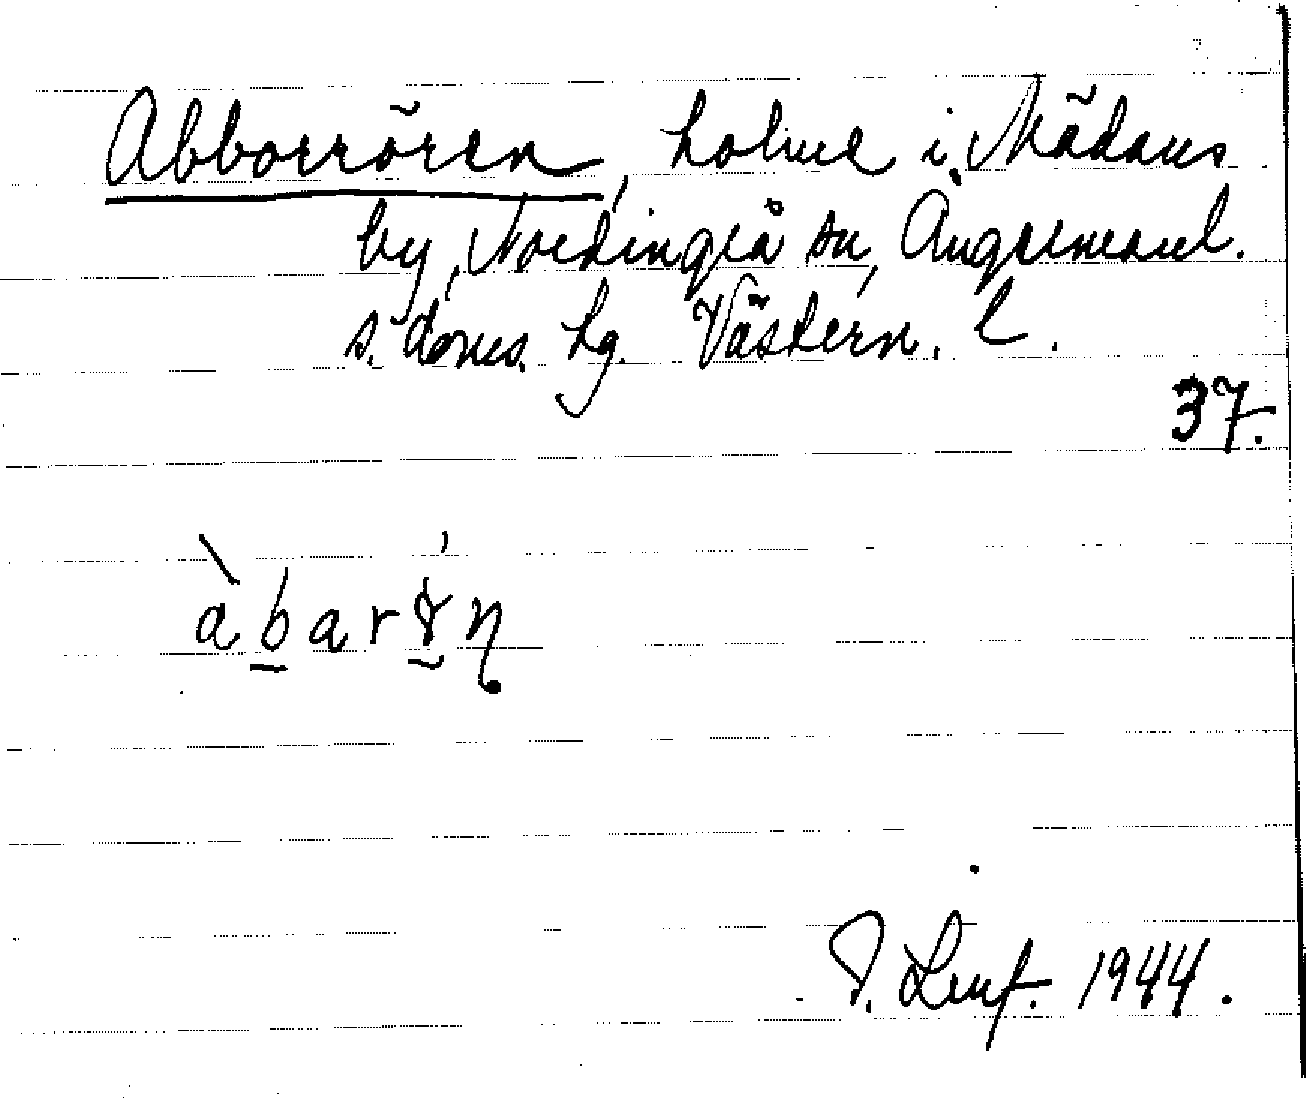 Abborrören, holme i Mädans
by, Nordingrå sn, Ångermanl.
s. doms. hg. Västern. l.
37.
àbarn
1944.